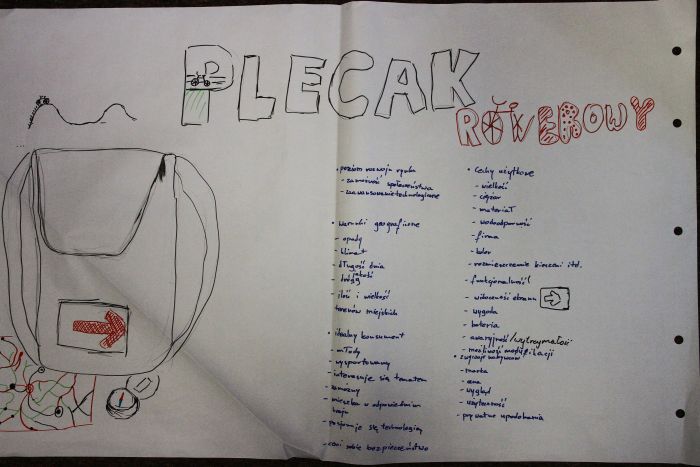 PLECAK
ROWEROWY
• poziom rozwoju rynku
- zamożność społeczeństwa
- zaawansowanie technologiczne
• warunki geograficzne
- opady
- klimat
- długość dnia
- jakość dróg
- ilość i wielkość
terenów miejskich
• idealny konsument
- młody
- wysportowany
- interesuje się tematem
- zamożny
- mieszka w odpowiednim
kraju
- pasjonuje się technologią
- ceni sobie bezpieczeństwo
• Cechy użytkowe
- wielkość
- ciężar
- materiał
- wodoodporność
- firma
- kolor
- rozmieszczenie kieszeni itd.
- funkcjonalność
- widoczność ekranu
- wygoda
- bateria
- awaryjność/wytrzymałość
- możliwość modyfikacji
• zwyczaje nabywców
- marka
- cena
- wygląd
- użyteczność
- prywatne upodobania